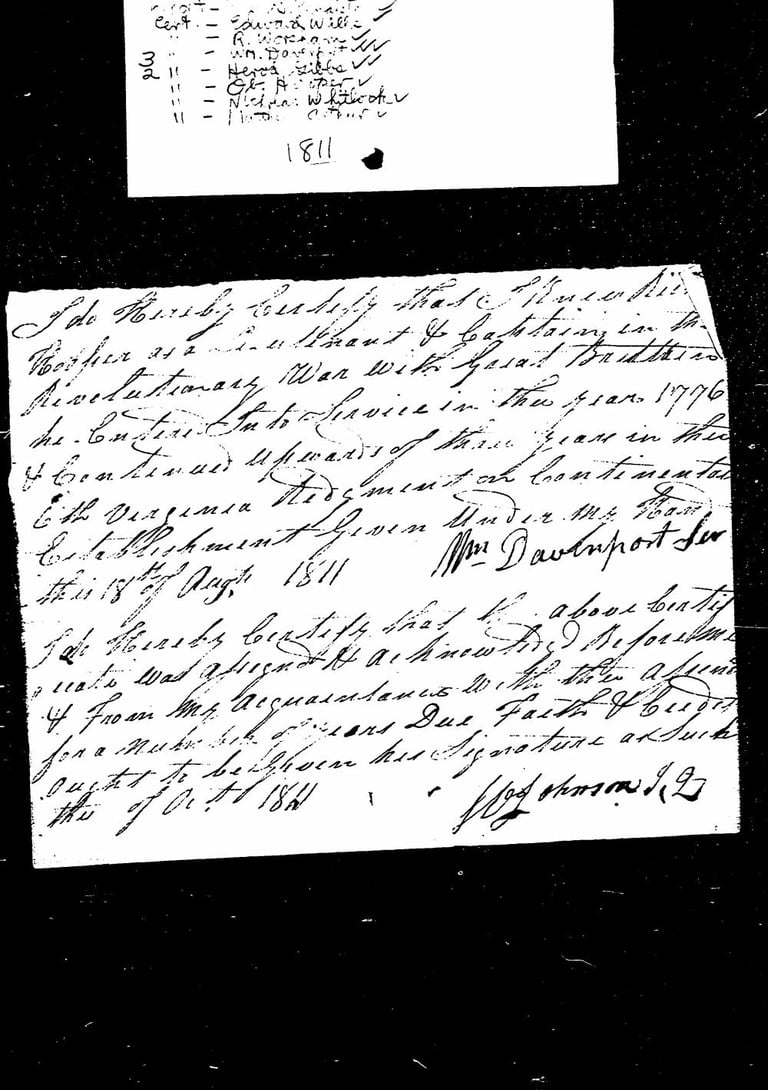 Cert. - Edward Willi
" - R. Workham ✓
" - Wm. Davenport ✓✓
3
2 " - Herod Gibbs ✓
" - Ob. Hooper ✓
" - Whitlock ✓
" -
1811
I do Hereby Certify that I Knew
Hooper as a Lieutenant & Captain in the
Revolutionary War with Great Brittain
he Entered Into Service in the year 1776
& Continued upwards of three years in the
6th Virginia Redgment on Continental
Establishment Given Under my Hand
this 18th of Augt. 1811 Wm Davenport Sen
I do Hereby Certify that the above Certif
icate was asigned & Acknowledged Before me
& From my Acquaintance with the asigner
for a Number of years Due Faith & Credit
ought to be Given his Signature as Such
the of Oct. 1811 Johnson J,